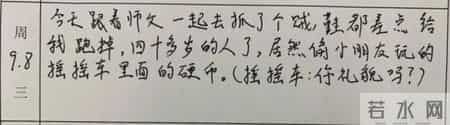 周
9.8
三
今天跟着师父一起去抓了个贼,鞋都差点给
我跑掉,四十多岁的人了,居然偷小朋友玩的
摇摇车里面的硬币。(摇摇车:你礼貌吗?)
若水网